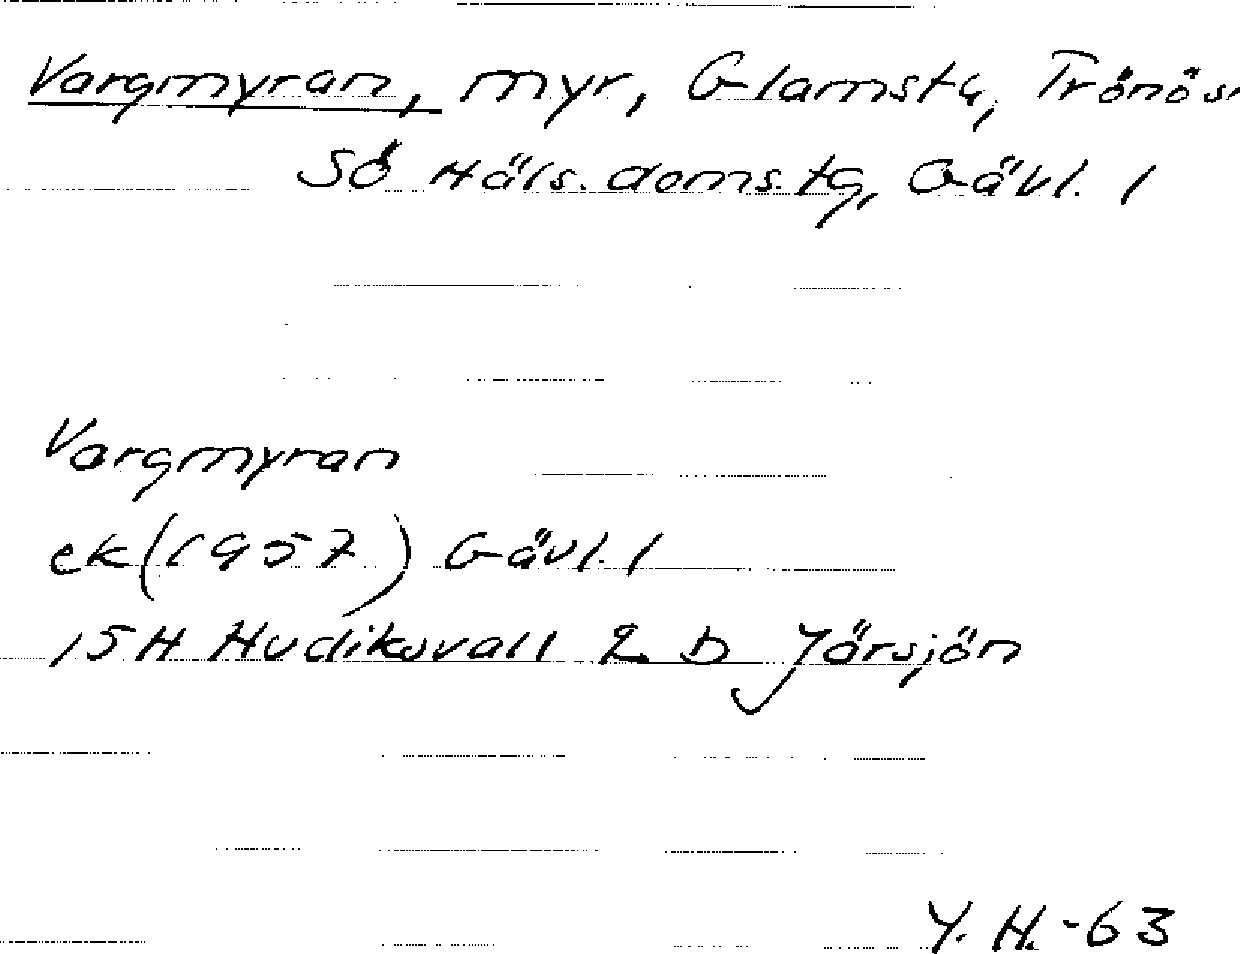 Vargmyran, myr, Glamsta, Trönösn
SÖ Häls. doms.tg, Gävl. 1
Vargmyran
ek (1957) Gävl. 1
15H Hudiksvall 2 D Yörsjön
Y. H.-63